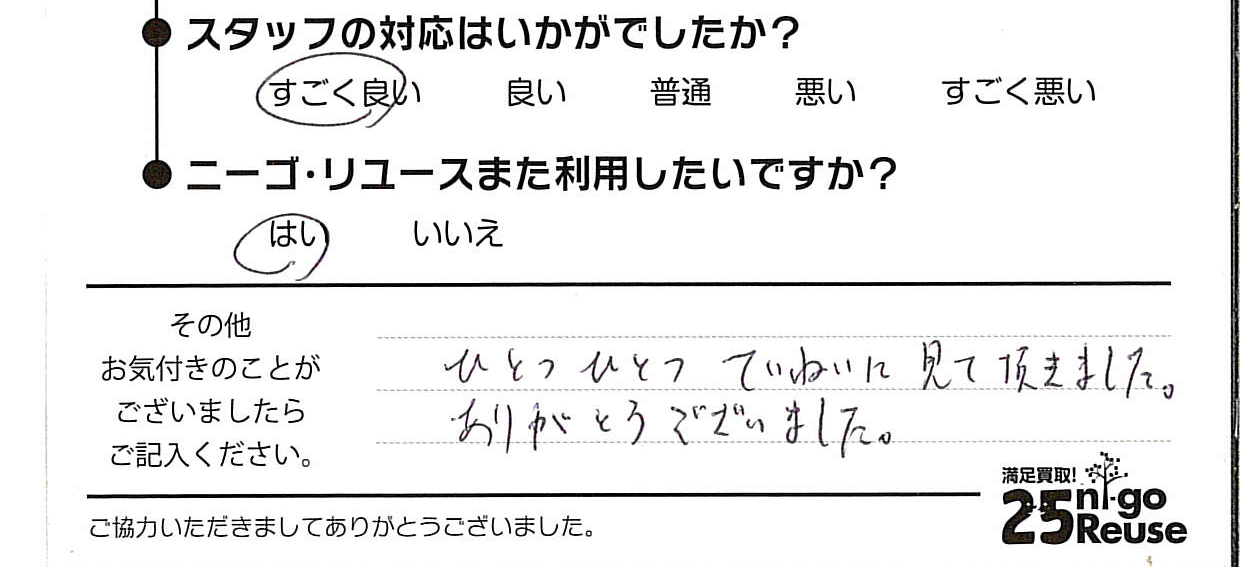 スタッフの対応はいかがでしたか？
すごく良い 良い 普通 悪い すごく悪い
ニーゴ・リユースまた利用したいですか？
はい いいえ
その他
お気付きのことが
ございましたら
ご記入ください。
ひとつひとつ ていねいに 見て頂きました。
ありがとうございました。
満足買取！
25 ni-go
Reuse
ご協力いただきましてありがとうございました。